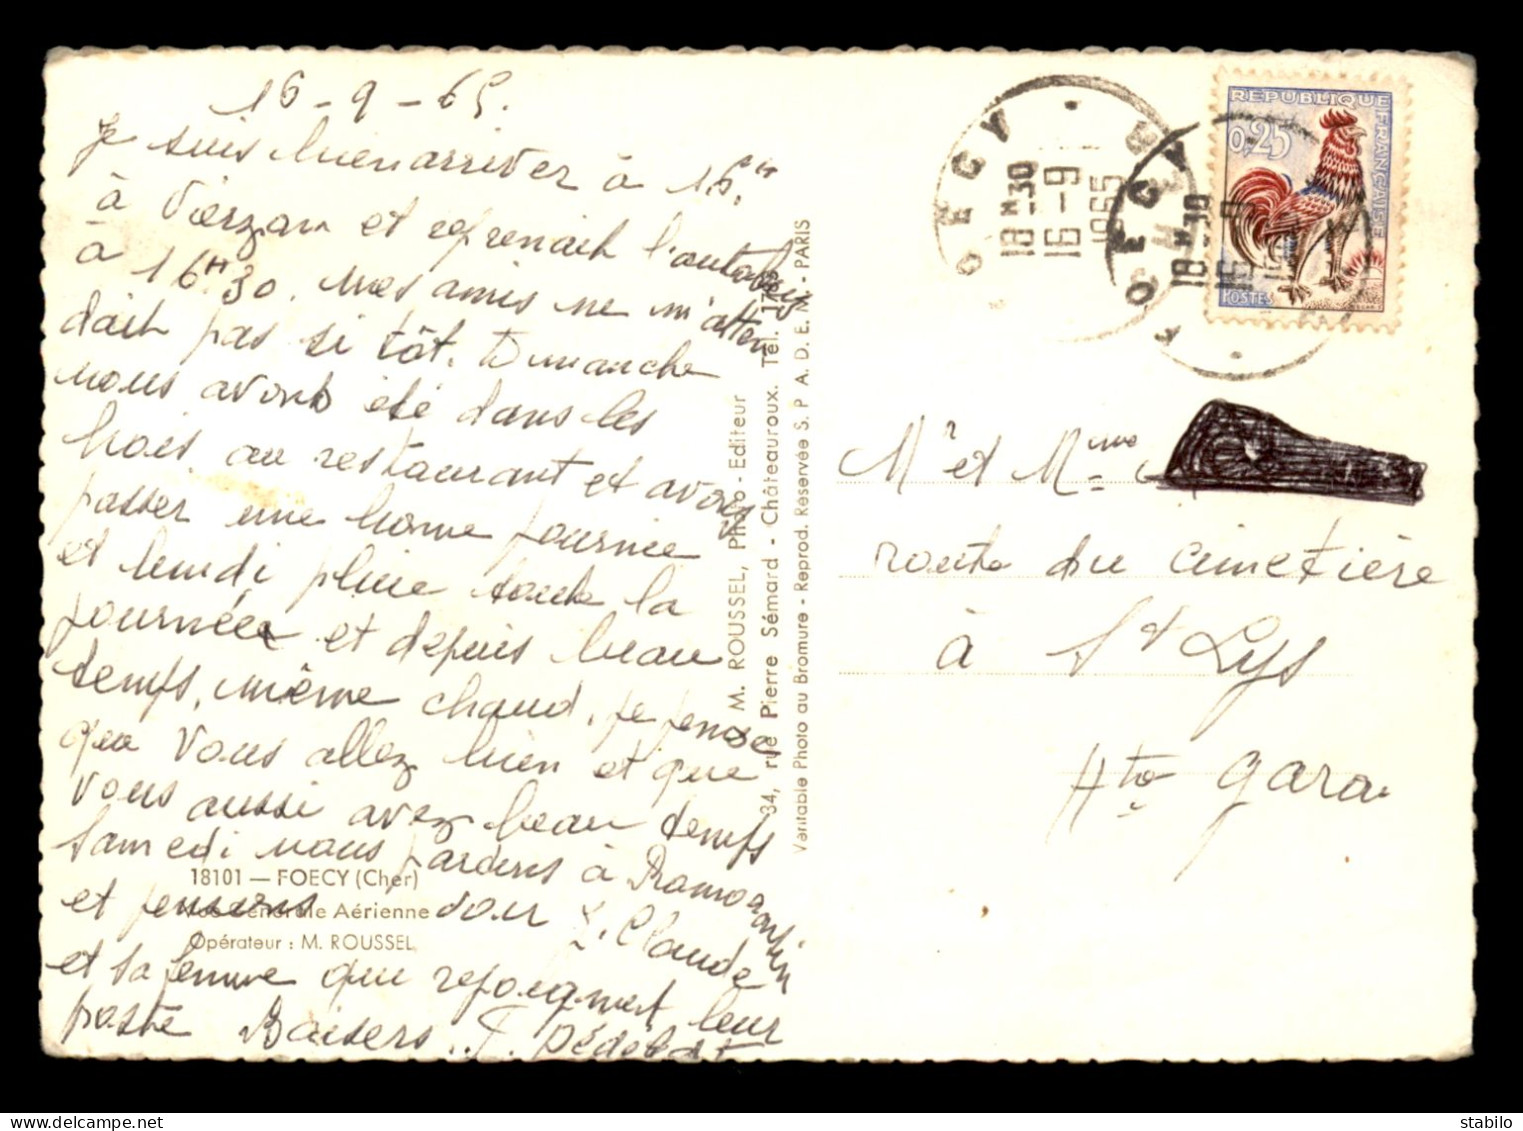 16-9-65.
Je suis bien arriver à 16.H
à Vierzon et reprenait l'autobus
à 16H30. mes amis ne m'atten
dait pas si tôt. Dimanche
nous avons été dans les
bois au restaurant et avons
passer une bonne journée
et lundi pluie toute la
journée et depuis beau
temps, même chaud, je pense
que Vous allez bien et que
vous aussi avez beau temps
Samedi nous partons à
et pour J. Claude
et sa femme que rejoignent leur
poste Baisers
18101 — FOECY (Cher)
Vue Générale Aérienne
Opérateur : M. ROUSSEL
M. ROUSSEL, Photo-Editeur
34, rue Pierre Sémard - Châteauroux. Tél.
Véritable Photo au Bromure - Reprod. Réservée S. P. A. D. E. M. - PARIS
FOECY
18H30
16-9
1965
FOECY
18H30
16-9
RÉPUBLIQUE FRANÇAISE
0,25
POSTES
Mr et Mme
route du cimetière
à St Lys
Hte Gara